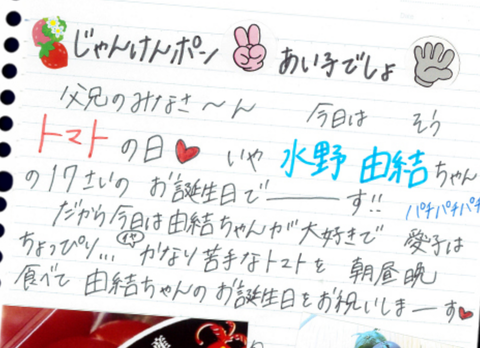 じゃんけんポン あい子でしょ
父兄のみなさ〜ん 今日は そう
トマトの日 いや 水野 由結ちゃん
の17さいの お誕生日で———す!!
パチパチパチ
だから今日は由結ちゃんが大好きで 愛子は
ちょっぴり... いや かなり苦手なトマトを 朝昼晩
食べて 由結ちゃんのお誕生日をお祝いしまーす